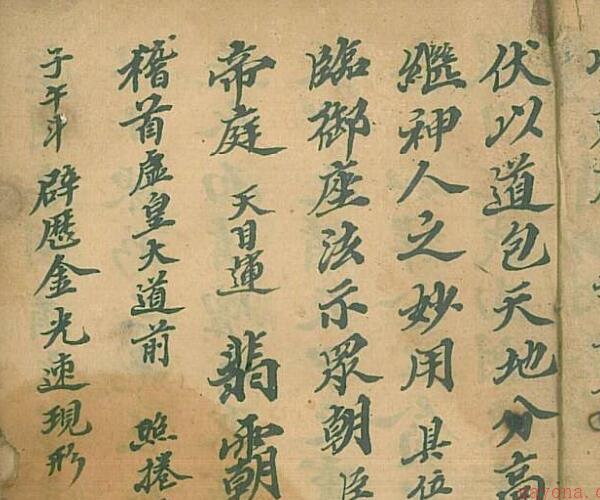 伏以道包天地分高
繼神人之妙用 具位
臨御座法示眾朝臣
帝庭 天目運 翡霸
稽首虛皇大道前 照捲
子午斗 辟歷金光速現形
yayona.com